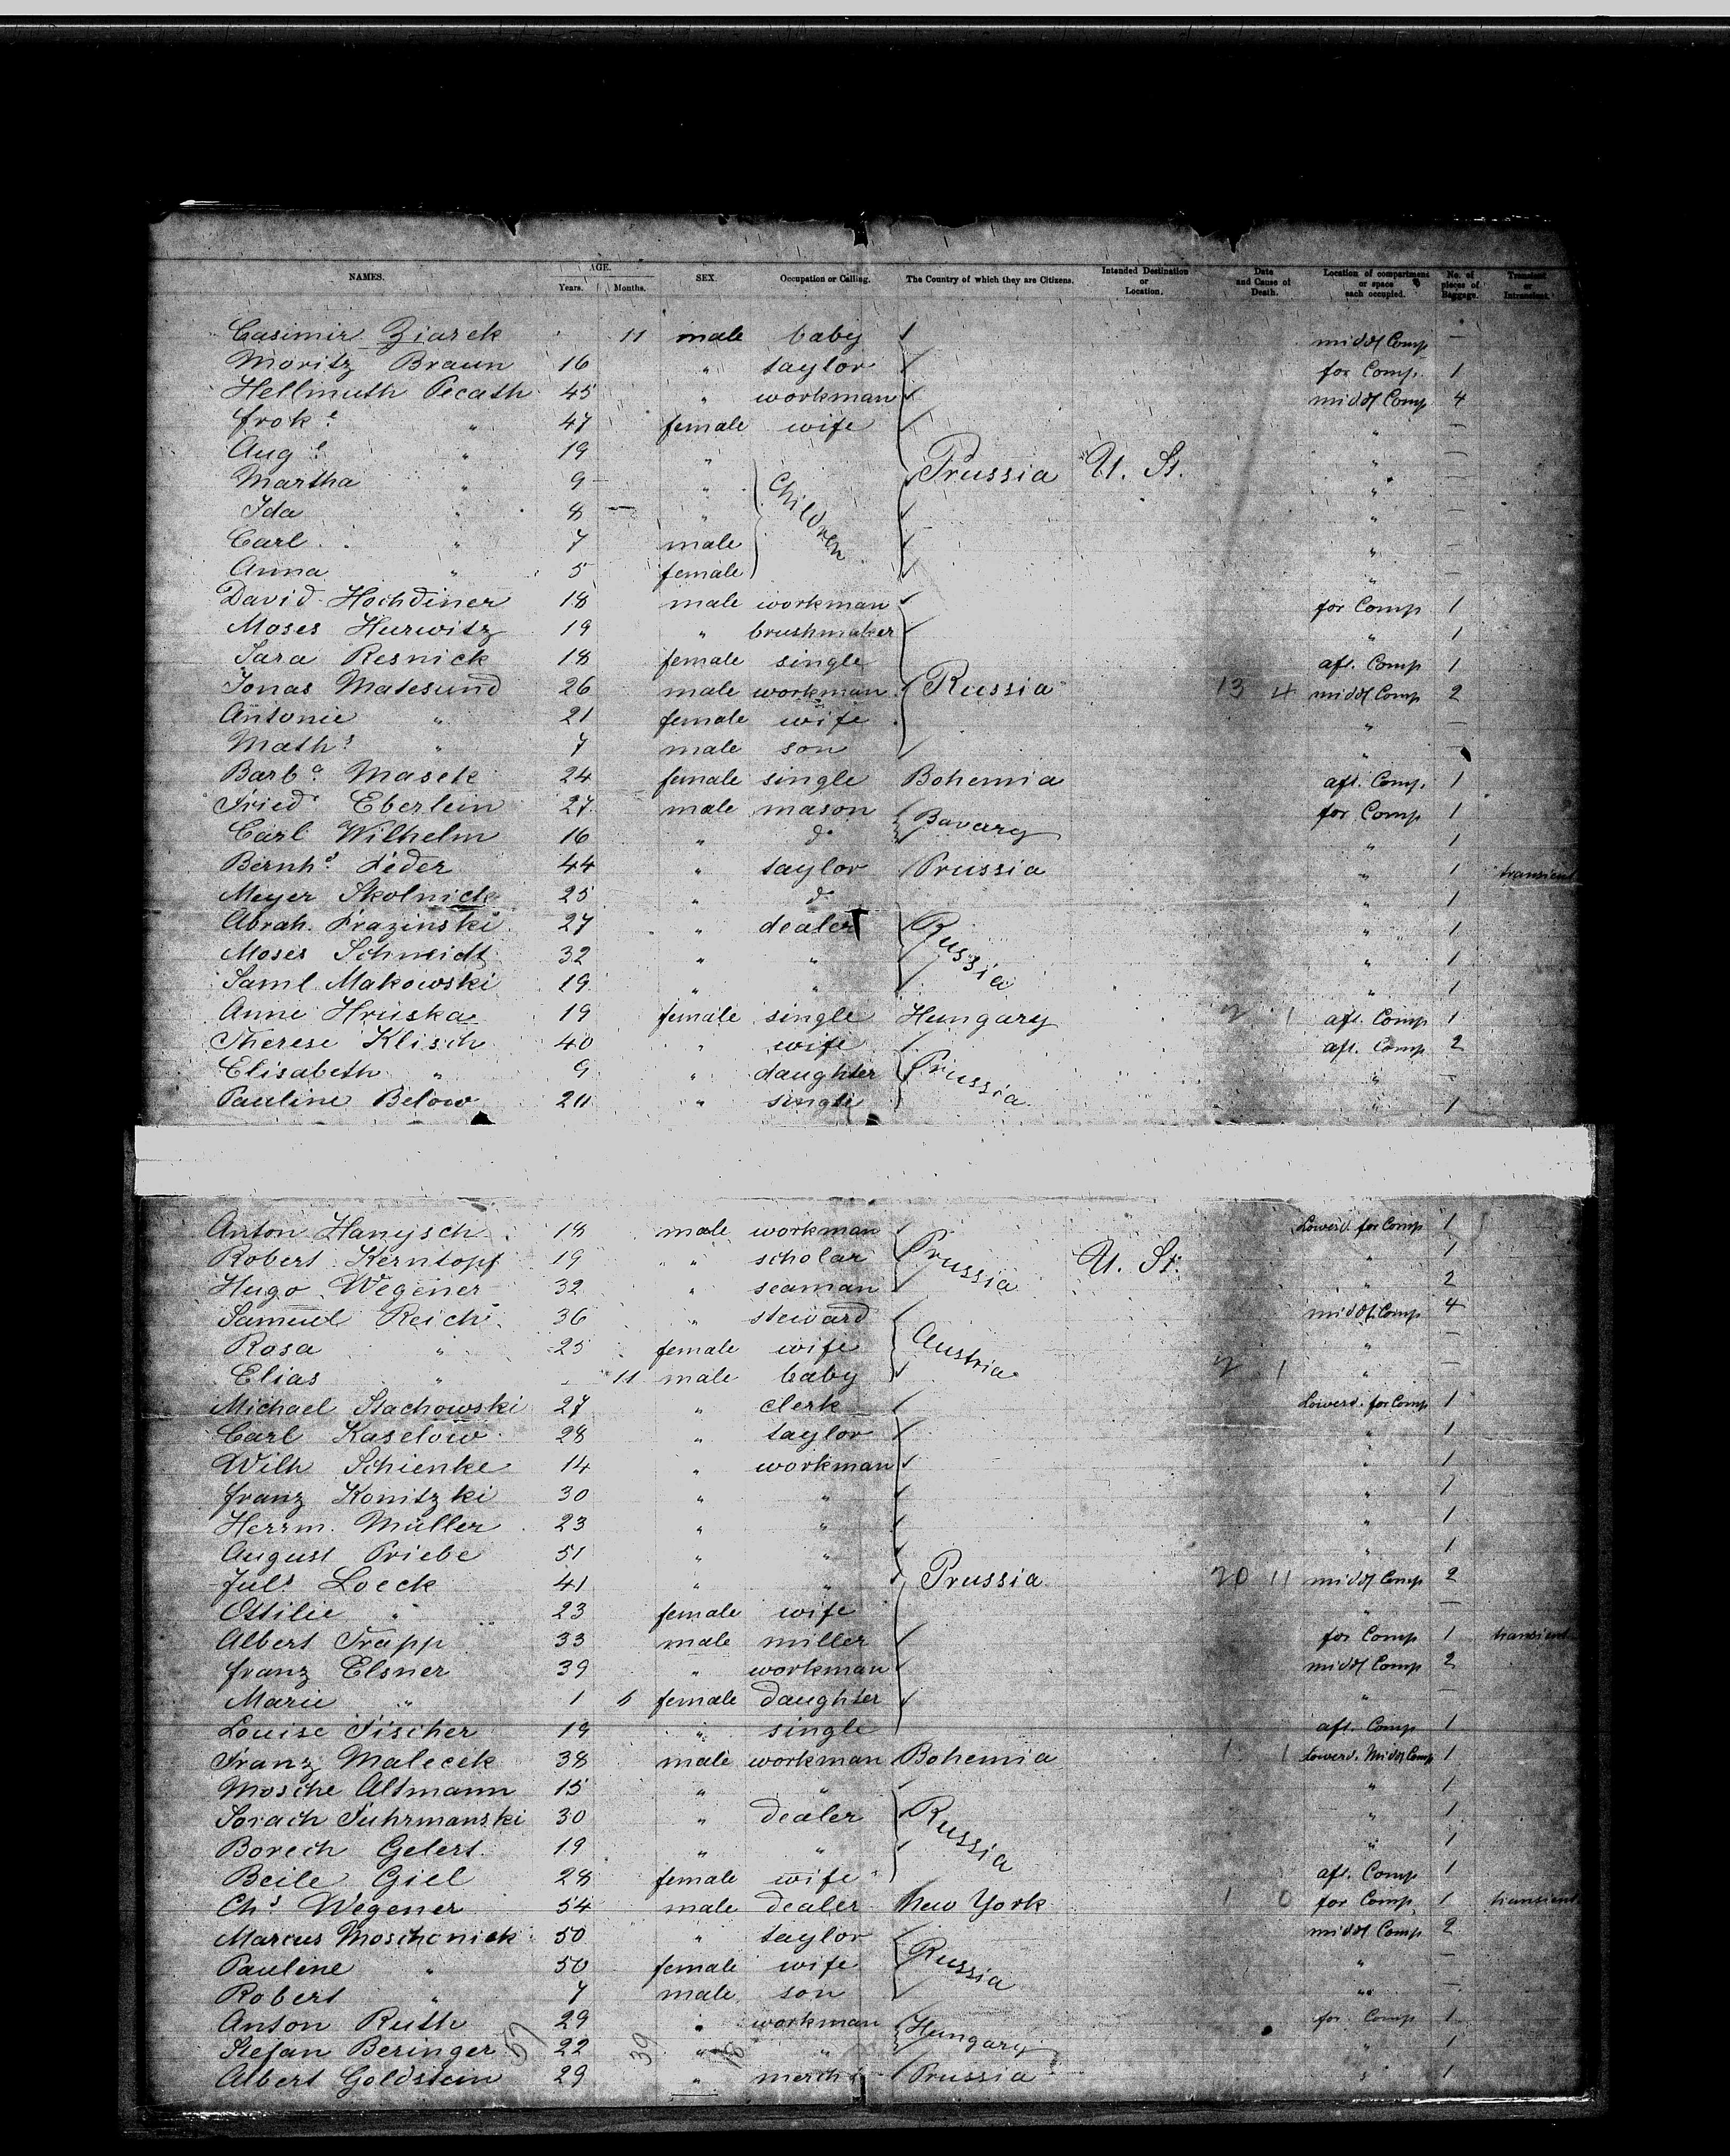 NAMES. AGE. Years. Months. SEX. Occupation or Calling. The Country of which they are Citizens. Intended Destination or Location. Date and Cause of Death. Location of compartment or space each occupied. No. of pieces of Baggage. Transient or Intransient.
Casimir Ziarek 11 male baby middl Comp —
Moritz Braun 16 " taylor for Comp. 1
Hellmuth Pecath 45 " workman middl Comp 4
" 47 female wife " —
Aug. " 19 " " —
Martha " 9 " Children Prussia U. St. " —
Ida " 8 — " " —
Carl " 7 male " —
Anna " 5 female " —
David Hochdiner 18 male workman for Comp 1
Moses Hurwitz 19 " brushmaker " 1
Sara Resnick 18 female single aft. Comp 1
Jonas Matesund 26 male workman Russia 13 4 middl Comp 2
Antonie " 21 female wife " —
Maths " 7 male son " —
Barba Masek 24 female single Bohemia aft. Comp. 1
Fried Eberlein 27 male mason Bavary for Comp 1
Carl Wilhelm 16 " do " 1
Bernhd Leder 44 " taylor Prussia " 1 transient
Meyer Skolnick 25 " do " 1
Abrah. Prazinski 27 " dealer Russia " 1
Moses Schmidt 32 " " " 1
Saml Makowski 19 " " " 1
Anne Hruska 19 female single Hungary 2 1 aft. Comp 1
Therese Klisch 40 " wife Prussia aft. Comp 2
Elisabeth " 9 " daughter " —
Pauline Below 211 " single " 1
Anton Hanysch 18 male workman Prussia Lowerd. for Comp 1
Robert Kerntopf 19 " scholar U. St. " 1
Hugo Wegener 32 " seaman " 2
Samuel Reich 36 " steward Austria middl. Comp 4
Rosa " 25 female wife " —
Elias " 11 male baby 2 1 " —
Michael Stachowski 27 " clerk Lowerd. for Comp 1
Carl Kaselow 28 " taylor " 1
Wilh Schienke 14 " workman " 1
Franz Konitzki 30 " " " 1
Herrm. Müller 23 " " " 1
August Priebe 51 " " " 1
Juls Loeck 41 " " Prussia 20 11 middl Comp 2
Ottilie " 23 female wife " —
Albert Trapp 33 male miller for Comp 1 transient
Franz Elsner 39 " workman middl Comp 2
Marie " 1 6 female daughter " —
Louise Fischer 19 " single aft. Comp 1
Franz Malecek 38 male workman Bohemia 1 1 Lowerd. Middl Comp 1
Mosche Altmann 15 " " Russia " 1
Sorach Fuhrmanski 30 " dealer " 1
Borech Gelert 19 " " " 1
Beile Giel 28 female wife aft. Comp 1
Chs Wegener 54 male dealer New York 1 0 for Comp 1 transient
Marcus Moschonick 50 " taylor Russia middl Comp 2
Pauline " 50 female wife " —
Robert " 7 male son " —
Anton Ruth 29 " workman Hungary for Comp 1
Stefan Beringer 57 22 39 " 18 " " 1
Albert Goldstein 29 " merch Prussia " 1